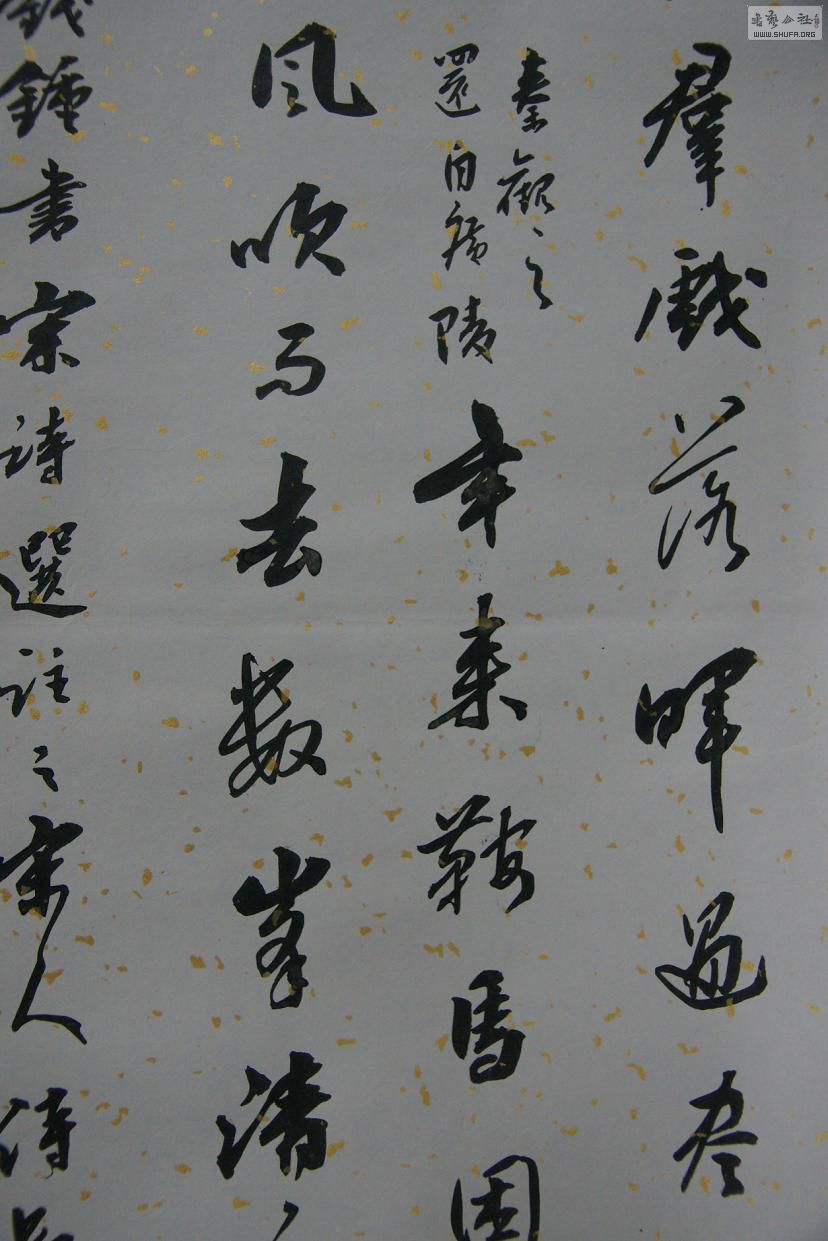 書藝公社
WWW.SHUFA.ORG
羣戲落暉過尽
秦觀之
還自廣陵
年来鞍馬困
风吹雨去數峯清
錢鍾書宋詩選註之宋人詩